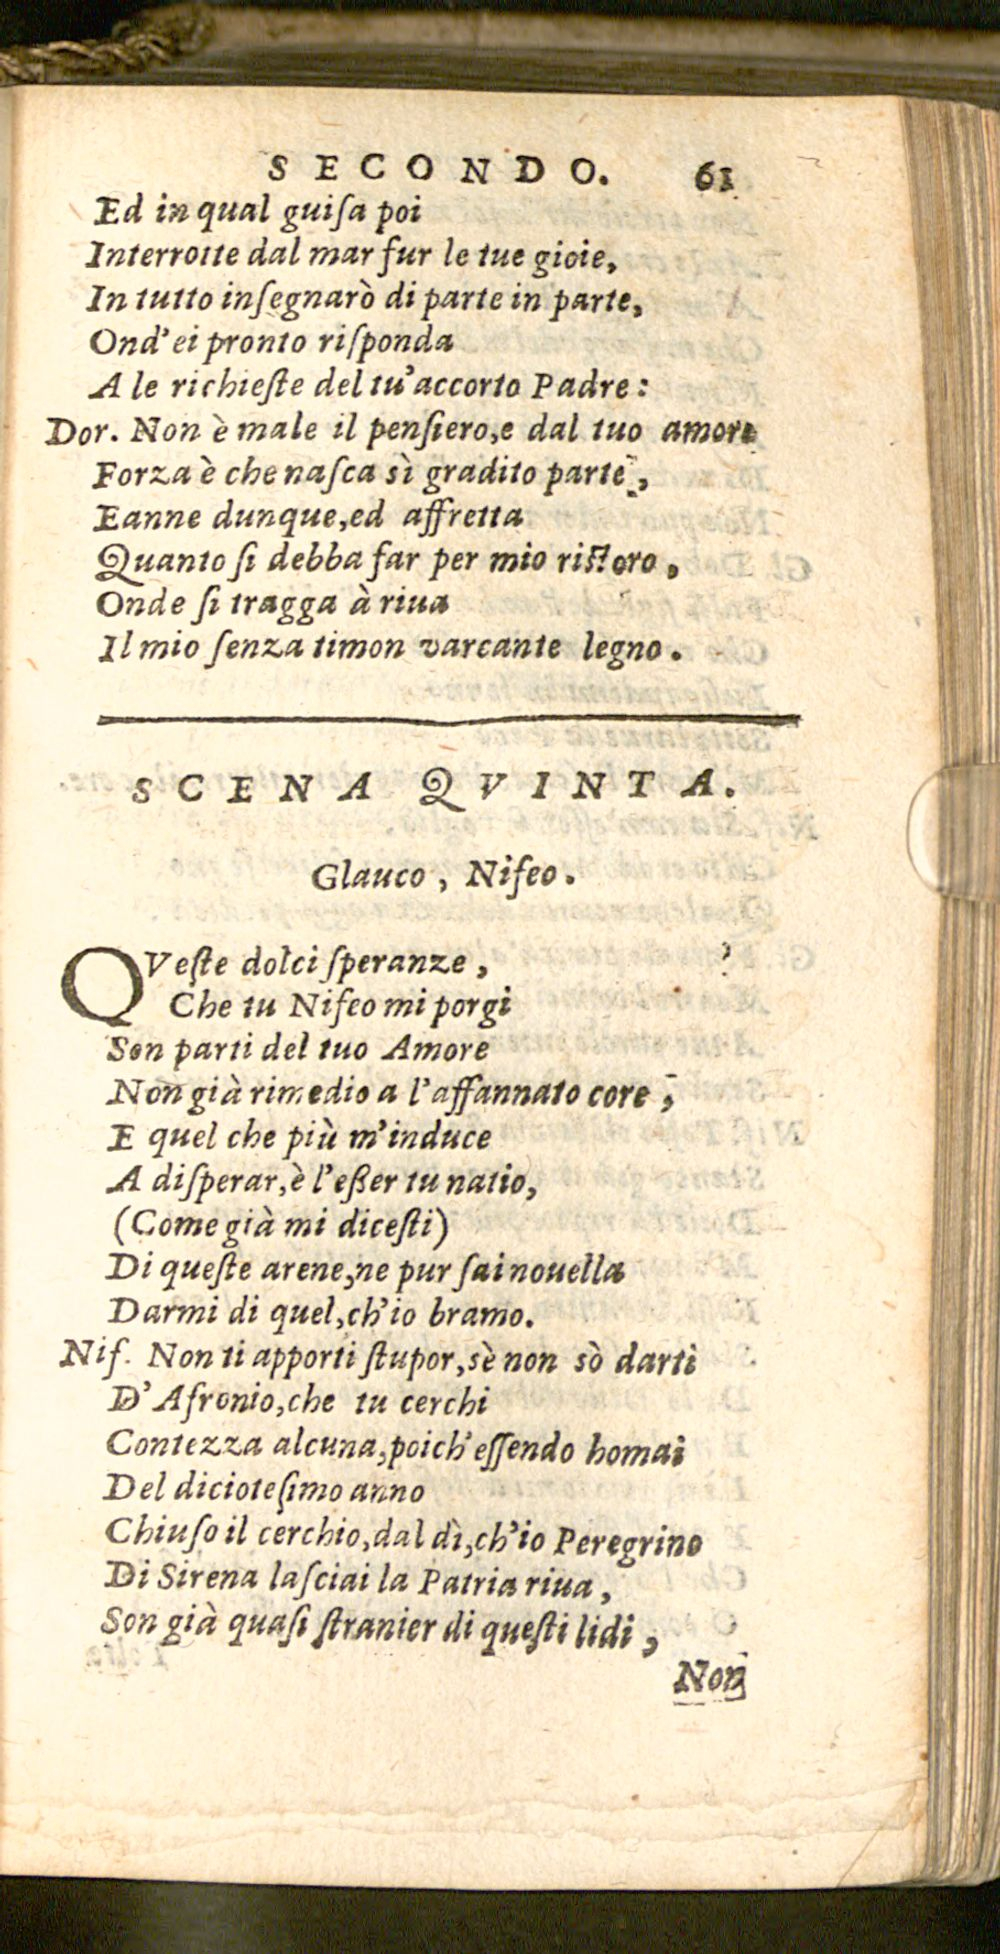 SECONDO. 61
Ed in qual guiſa poi
Interrotte dal mar fur le tue gioie,
In tutto inſegnarò di parte in parte,
Ond' ei pronto riſponda
A le richieſte del tu' accorto Padre:
Dor. Non è male il penſiero,e dal tuo amore
Forza è che naſca sì gradito parte,
Eanne dunque,ed affretta
Quanto ſi debba far per mio riſtoro,
Onde ſi tragga à riua
Il mio ſenza timon varcante legno.
SCENA QVINTA.
Glauco, Niſeo.
QVeſte dolci ſperanze,
Che tu Niſeo mi porgi
Son parti del tuo Amore
Non già rimedio a l'affannato core,
E quel che più m'induce
A diſperar,è l'eßer tu natio,
(Come già mi diceſti)
Di queſte arene,ne pur ſai nouella
Darmi di quel,ch'io bramo.
Niſ. Non ti apporti ſtupor,sè non sò darti
D' Aſronio,che tu cerchi
Contezza alcuna,poich'eſſendo homai
Del dicioteſimo anno
Chiuſo il cerchio,dal dì,ch'io Peregrino
Di Sirena laſciai la Patria riua,
Son già quaſi ſtranier di queſti lidi,
Non